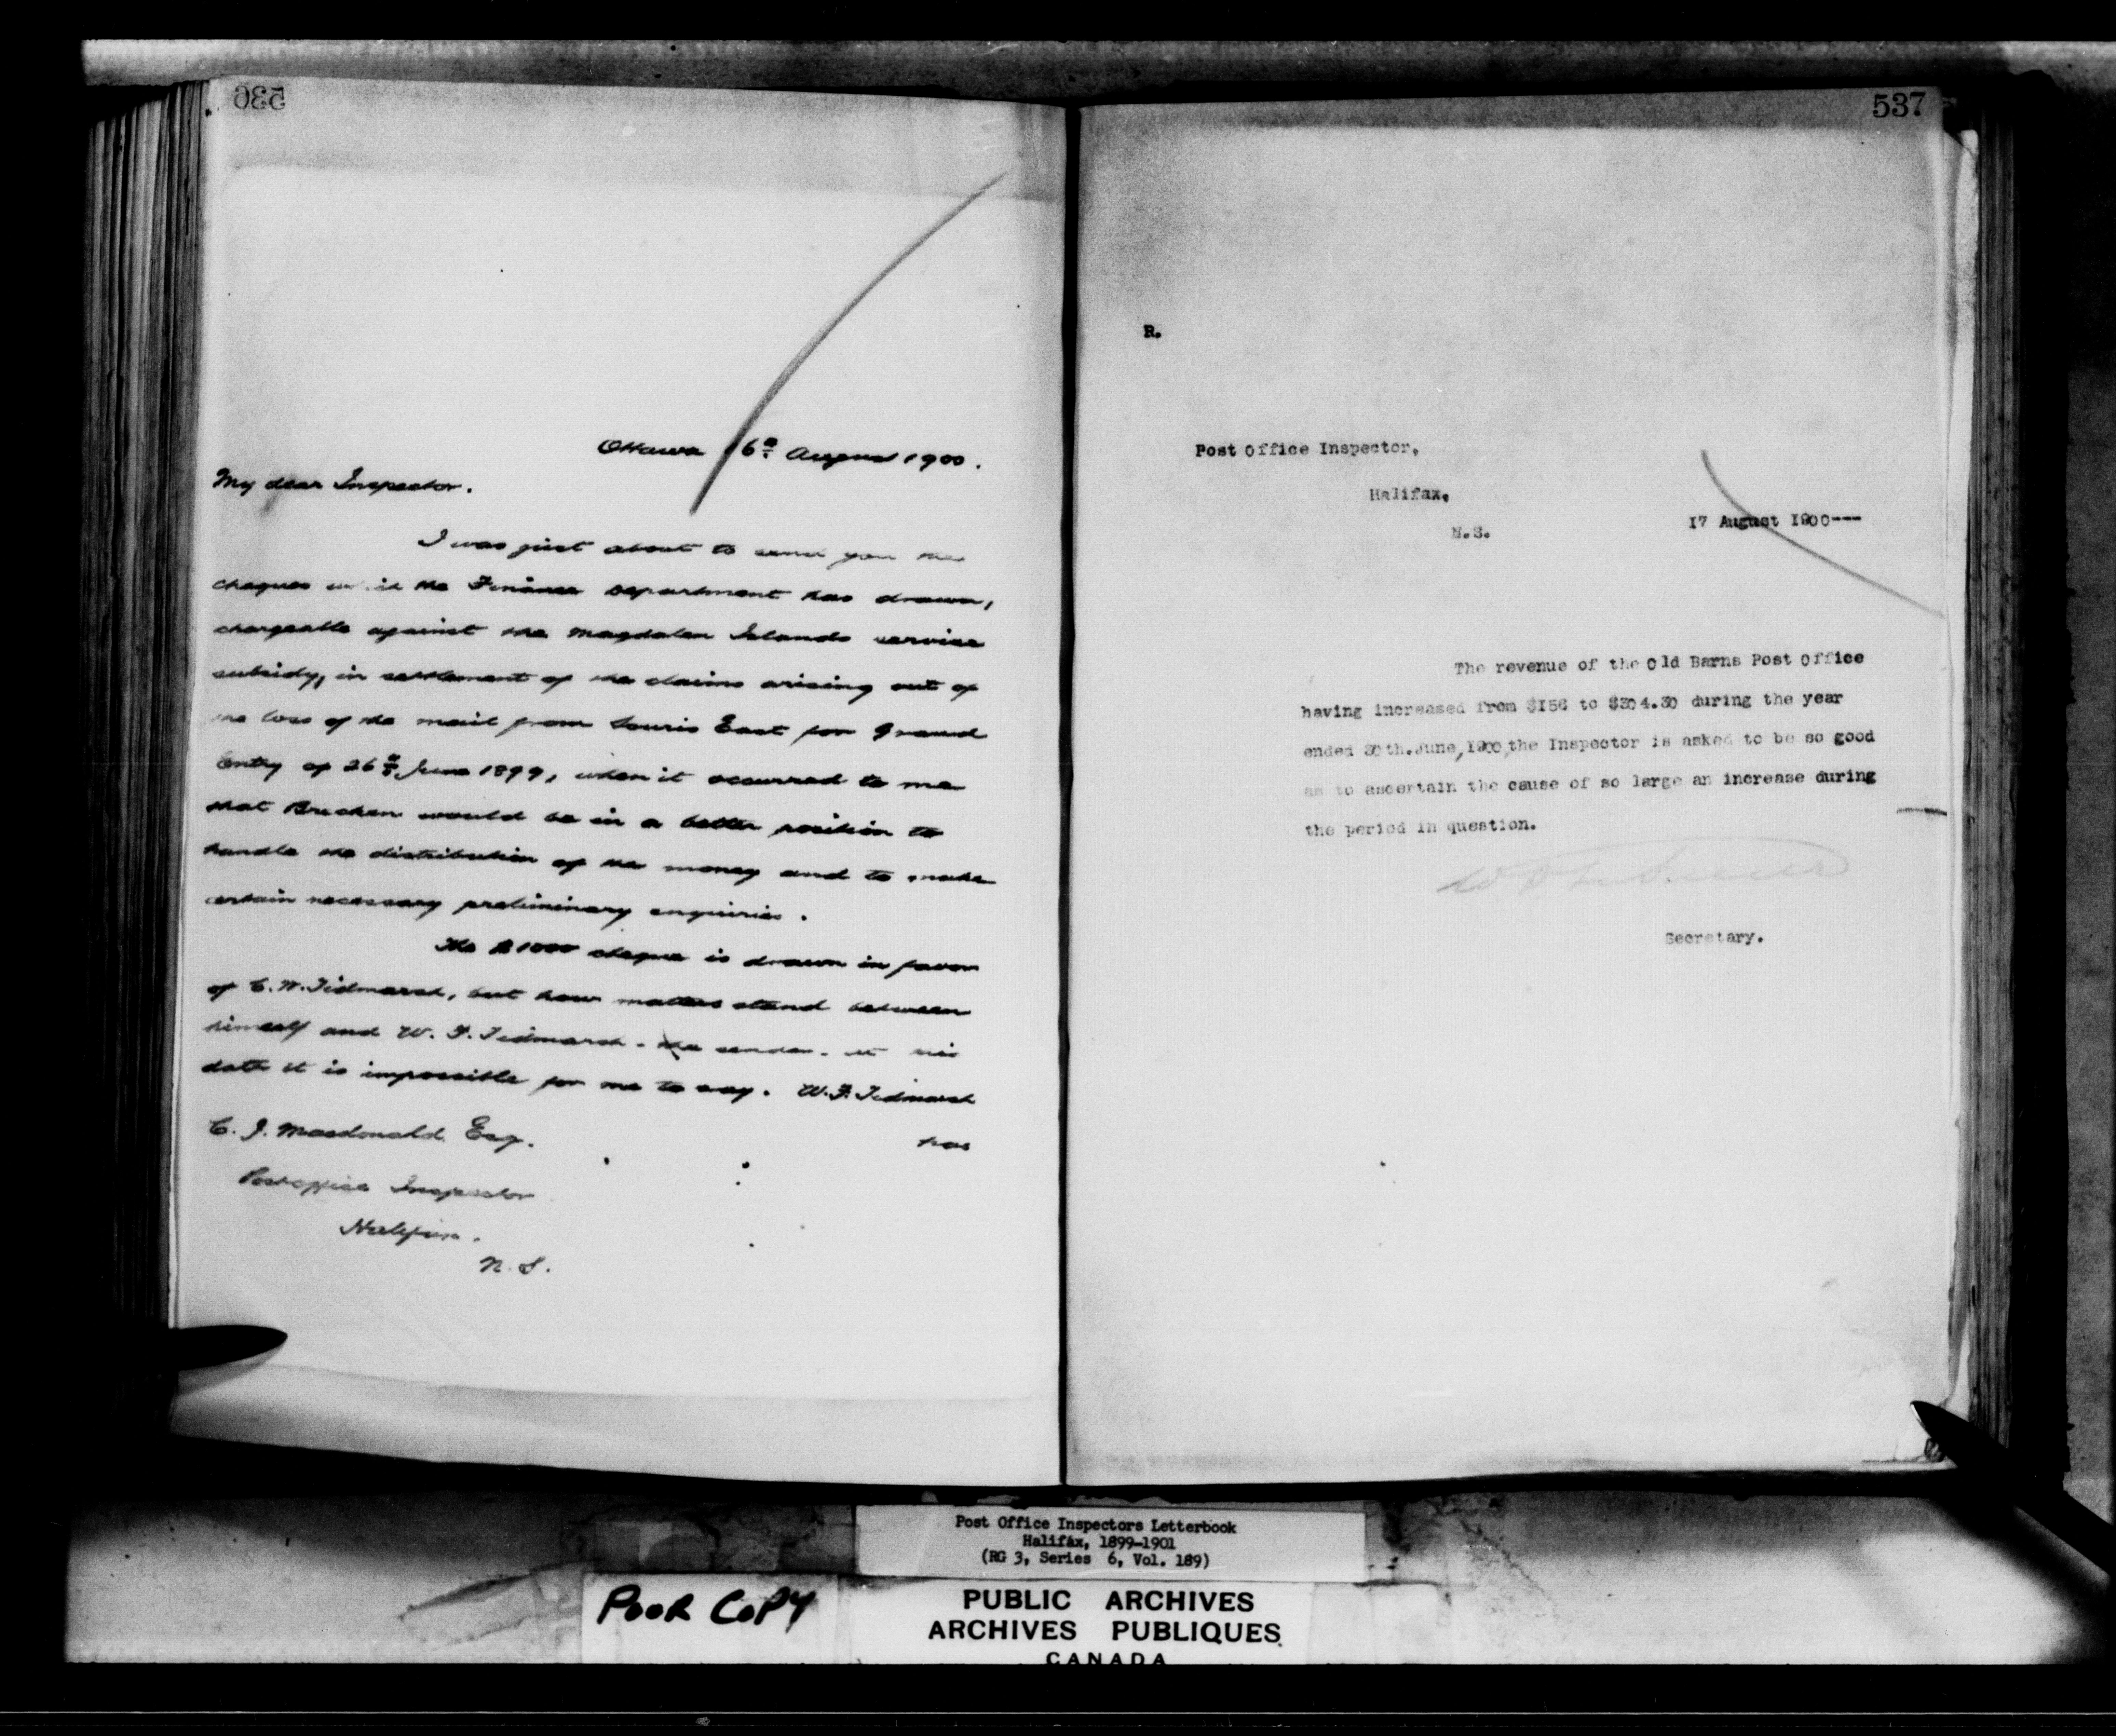 536
Ottawa 16th August 1900.
My dear Inspector.
I was just about to send you the
cheques which the Finance Department has drawn,
chargeable against the Magdalen Islands service
subsidy, in settlement of the claims arising out of
the loss of the mail from Souris East for Grand
Entry of 26th June 1899, when it occurred to me
that Brecken would be in a better position to
handle the distribution of the money and to make
certain necessary preliminary enquiries.
The $1000 cheque is drawn in favor
of C. W. Tidmarsh, but how matters stand between
himself and W. F. Tidmarsh - the sender - at this
date it is impossible for me to say. W. F. Tidmarsh
has
C. J. Macdonald Esq.
Postoffice Inspector
Halifax.
N. S.
537
R.
Post Office Inspector,
Halifax,
N.S.
17 August 1900---
The revenue of the Old Barns Post Office
having increased from $156 to $304.30 during the year
ended 30th.June,1900,the Inspector is asked to be so good
as to ascertain the cause of so large an increase during
the period in question.
Secretary.
Post Office Inspectors Letterbook
Halifax, 1899-1901
(RG 3, Series 6, Vol. 189)
POOR COPY
PUBLIC ARCHIVES
ARCHIVES PUBLIQUES
CANADA